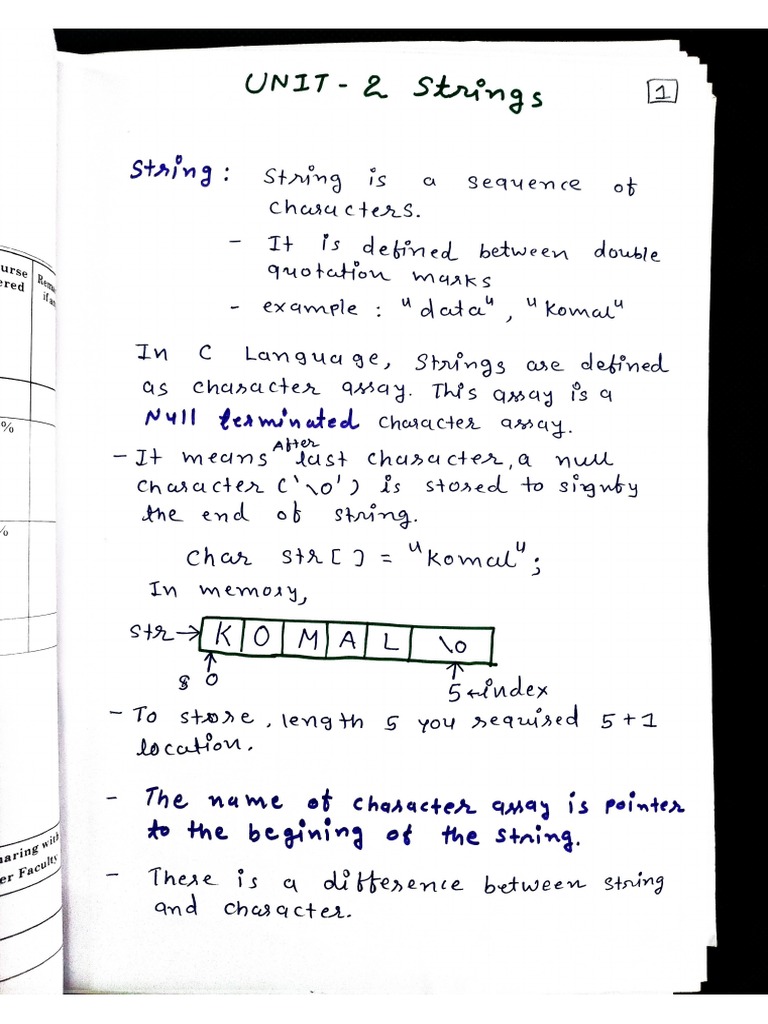 UNIT - 2 Strings
1
String : String is a sequence of
characters.
- It is defined between double
quotation marks
- example : "data", "komal"
In C Language, Strings are defined
as character array. This array is a
Null terminated character array.
- It means After last character, a null
character ('\0') is stored to signify
the end of string.
char str[] = "komal";
In memory,
str → K O M A L \0
0
5 ← index
- To store, length 5 you required 5+1
location.
- The name of character array is pointer
to the begining of the string.
- There is a difference between string
and character.
urse
ered
Rema
if an
%
%
haring with
er Faculty